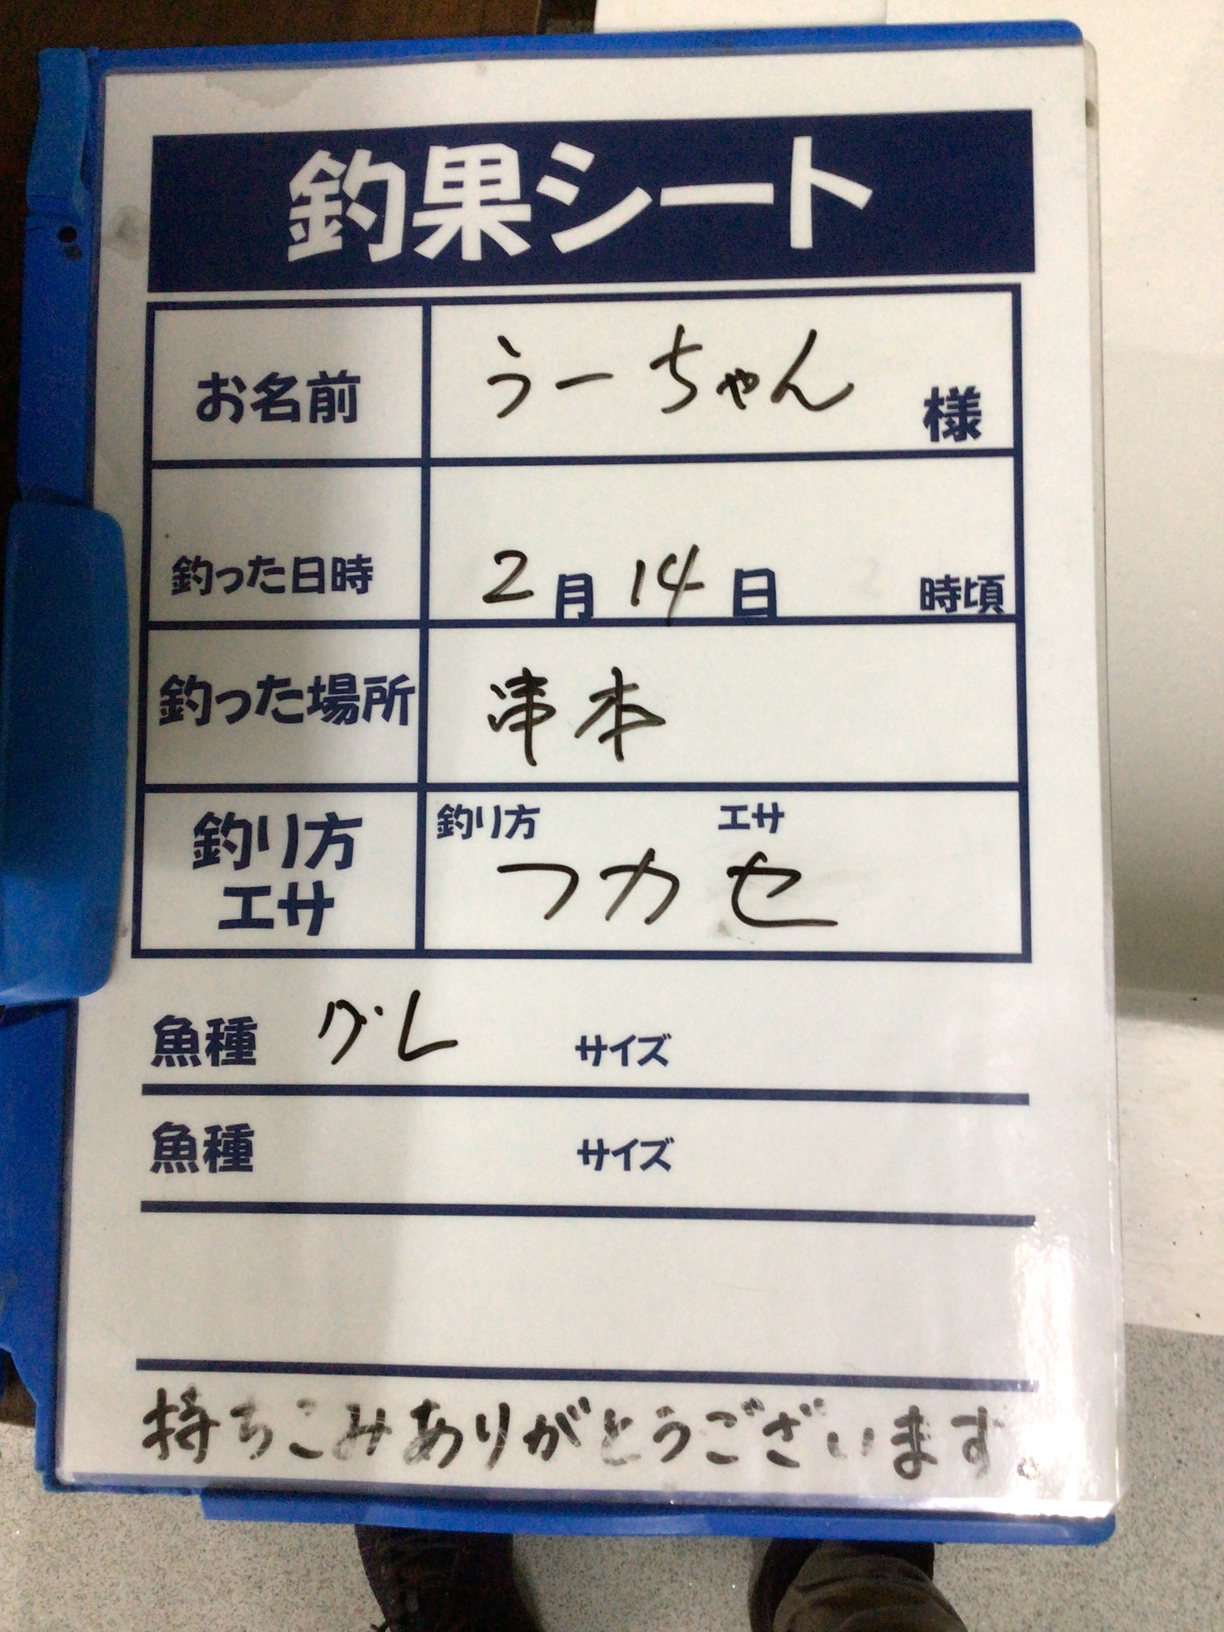 釣果シート
お名前 うーちゃん 様
釣った日時 2月14日 時頃
釣った場所 串本
釣り方 エサ
釣り方
エサ
フカセ
魚種 グレ サイズ
魚種 サイズ
持ちこみありがとうございます。